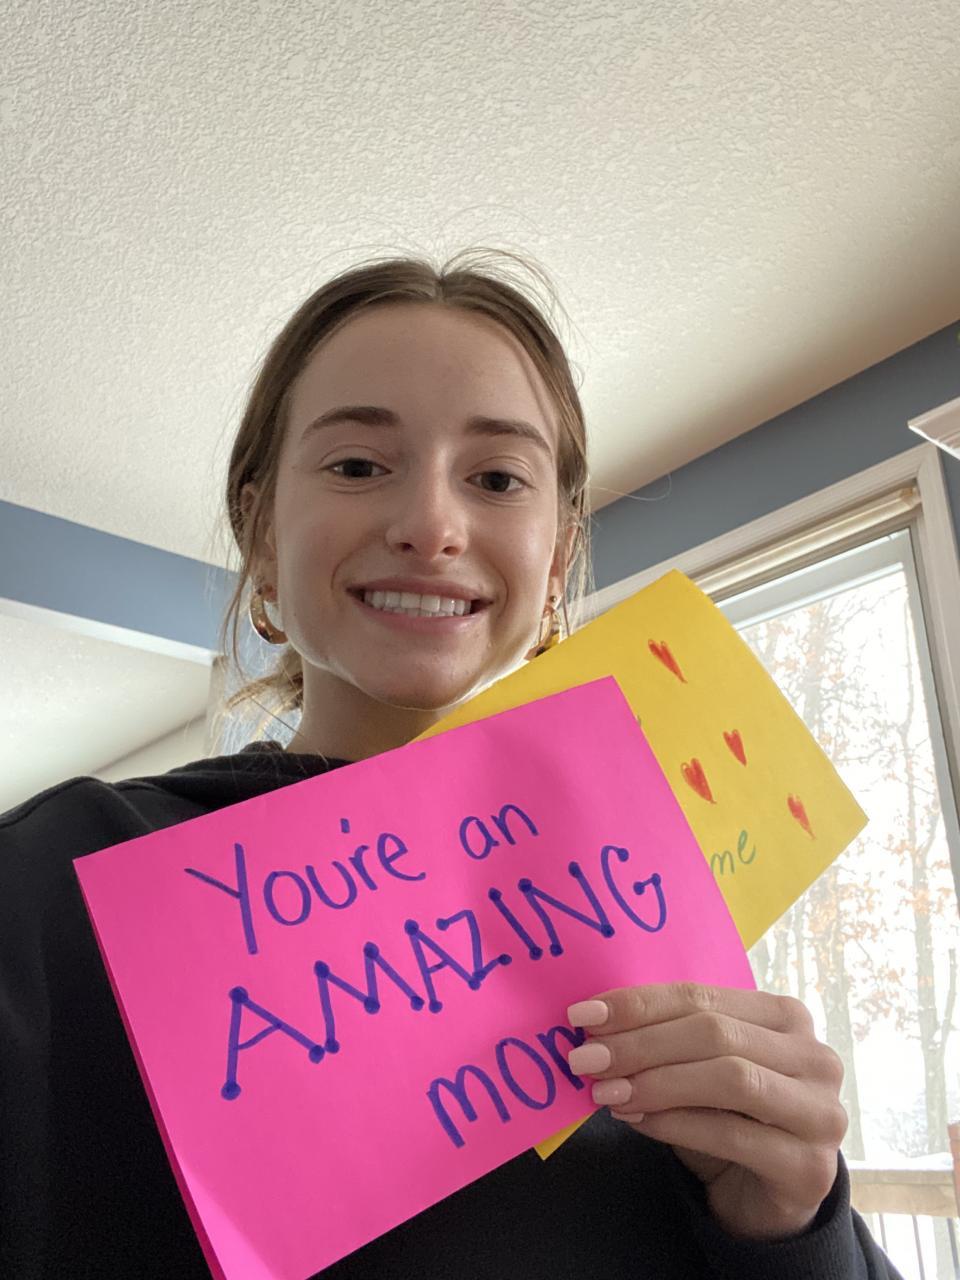 You're an
AMAZING
me